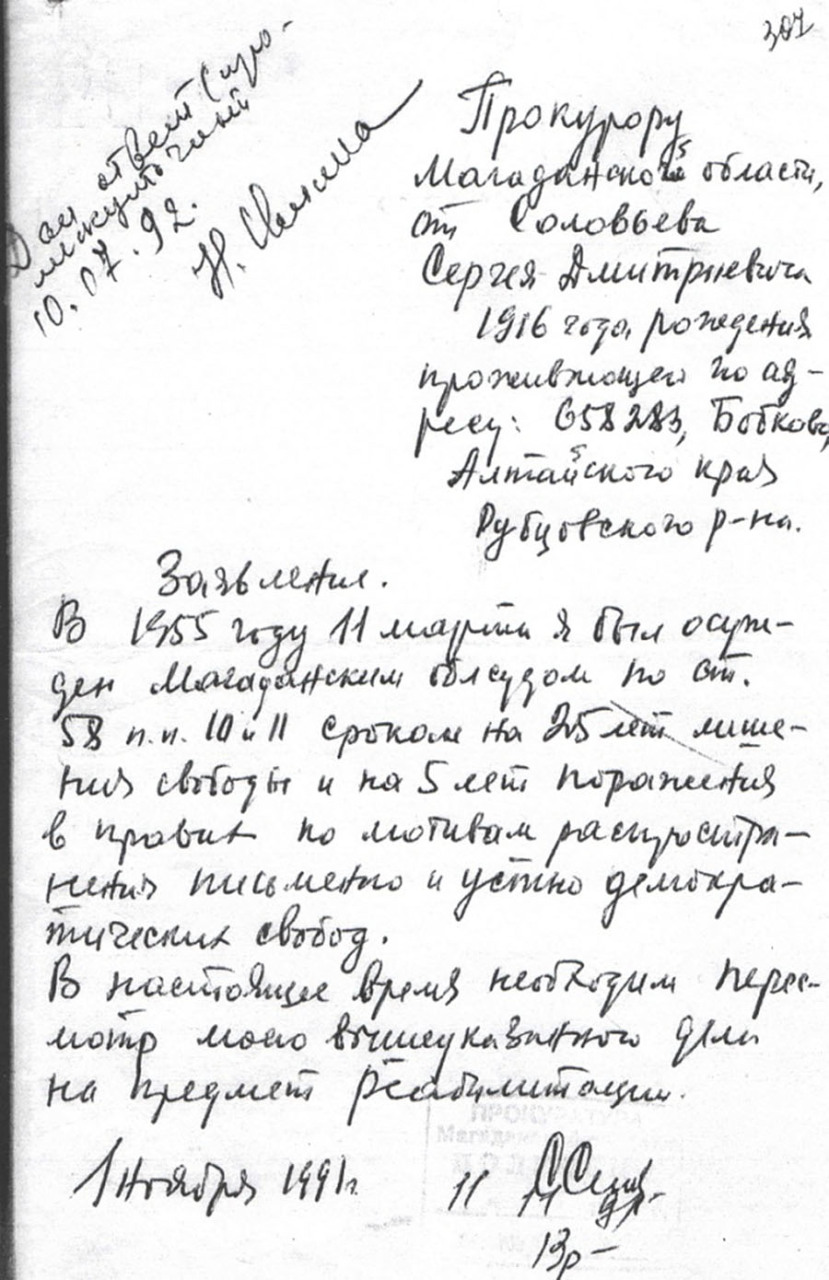 307
Дан ответ
10.07.92.
Прокурору
Магаданской области,
от Соловьева
Сергея Дмитриевича
1916 года рождения
проживающего по ад-
ресу: 658283, Бобково,
Алтайского края
Рубцовского р-на.
Заявление.
В 1955 году 11 марта я был осуж-
ден Магаданским облсудом по ст.
58 п.п. 10 и 11 сроком на 25 лет лише-
ния свободы и на 5 лет поражения
в правах по мотивам распростра-
нения письменно и устно демокра-
тических свобод.
В настоящее время необходим перес-
мотр моего вышеуказанного дела
на предмет реабилитации.
ПРОКУРАТУРА
1 ноября 1991 г.